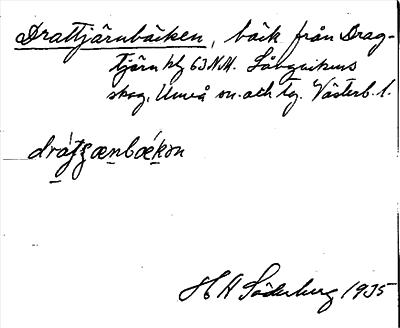 Drattjärnbäcken, bäck från Drag-
tjärn kbl 63 N.M. Lövövikens
skog, Umeå sn. och tg. Västerb. l.
dráʃʒænbǽkən
H H Söderberg 1935